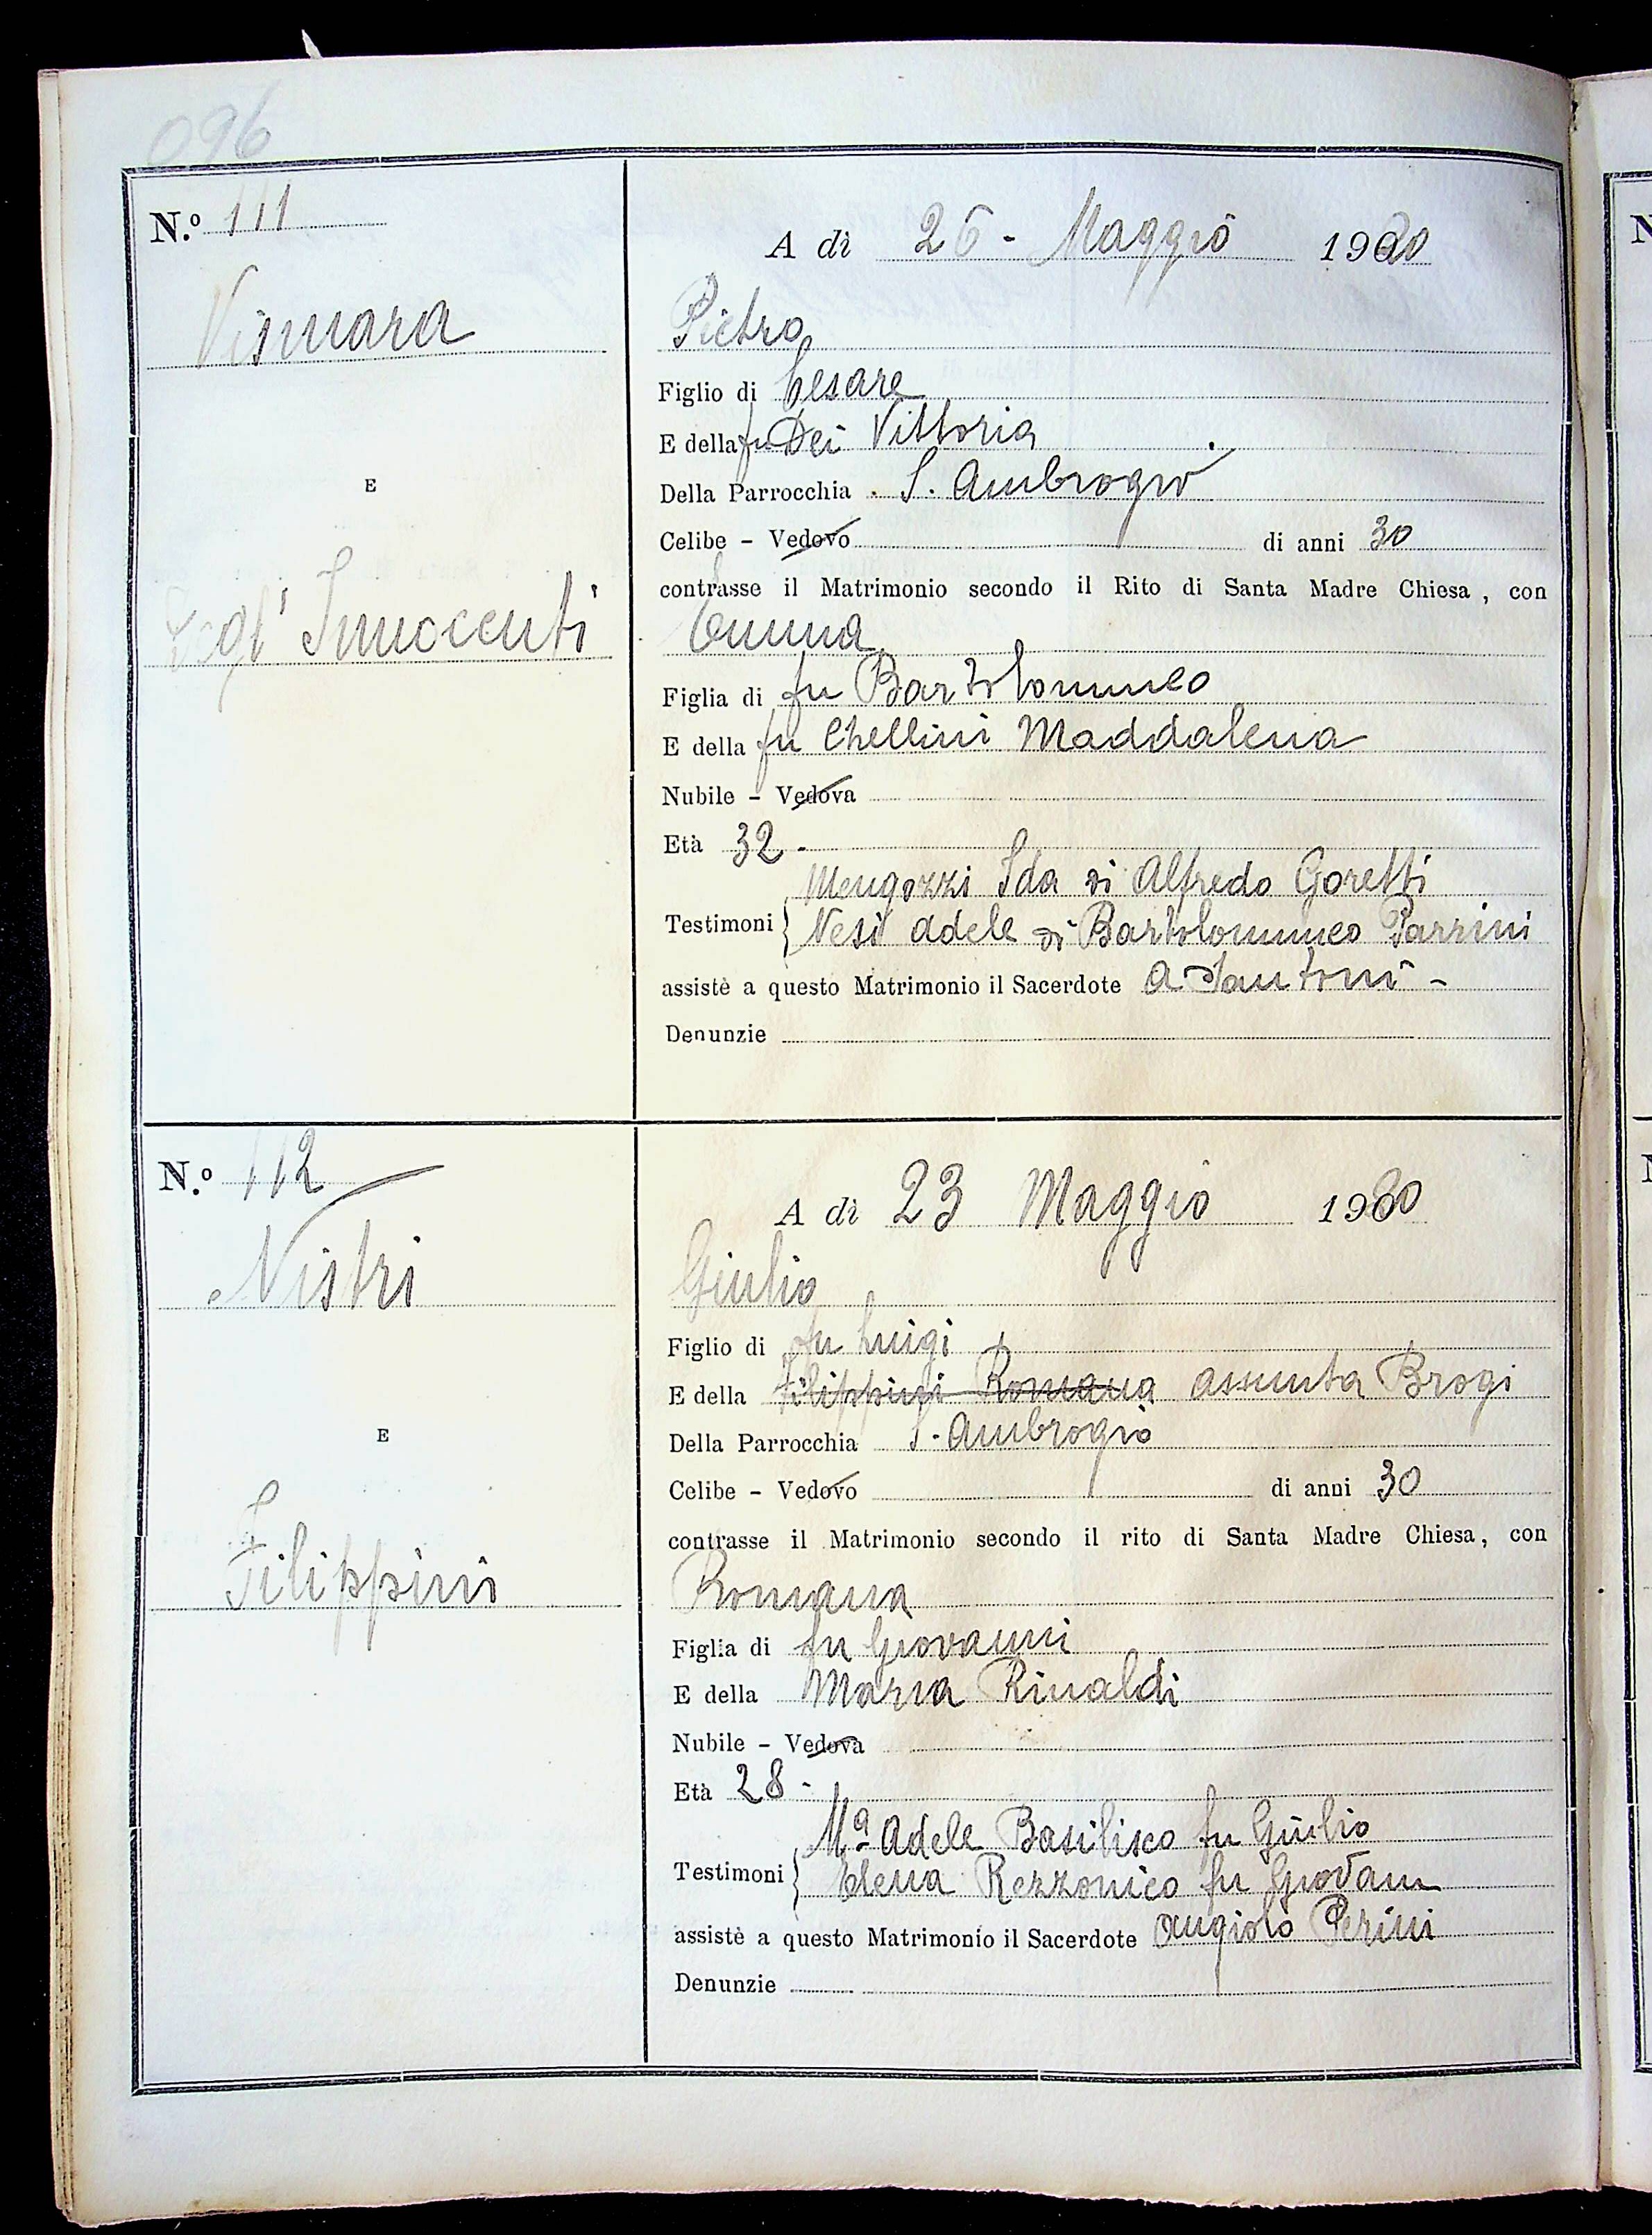 096
N.º 111
A dì 26 - Maggio 1920
Vismara
Pietro
Figlio di Cesare
E della fu Dei Vittoria
E
Della Parrocchia S. Ambrogio
Celibe - Vedovo di anni 30
contrasse il Matrimonio secondo il Rito di Santa Madre Chiesa, con
Degl' Innocenti
Emma
Figlia di fu Bartolommeo
E della fu Chellini Maddalena
Nubile - Vedova
Età 32 -
Mengozzi Ida di Alfredo Goretti
Testimoni Nesi Adele di Bartolommeo Parrini
assistè a questo Matrimonio il Sacerdote A Santoni -
Denunzie
N.º 112
A dì 23 Maggio 1920
Nistri
Giulio
Figlio di fu Luigi
E della Filippini Romana Assunta Brogi
E
Della Parrocchia S. Ambrogio
Celibe - Vedovo di anni 30
contrasse il Matrimonio secondo il rito di Santa Madre Chiesa, con
Filippini
Romana
Figlia di fu Giovanni
E della Maria Rinaldi
Nubile - Vedova
Età 28 -
Mª Adele Basilisco fu Giulio
Testimoni Elena Rezzonico fu Giovann
assistè a questo Matrimonio il Sacerdote Angiolo Perini
Denunzie